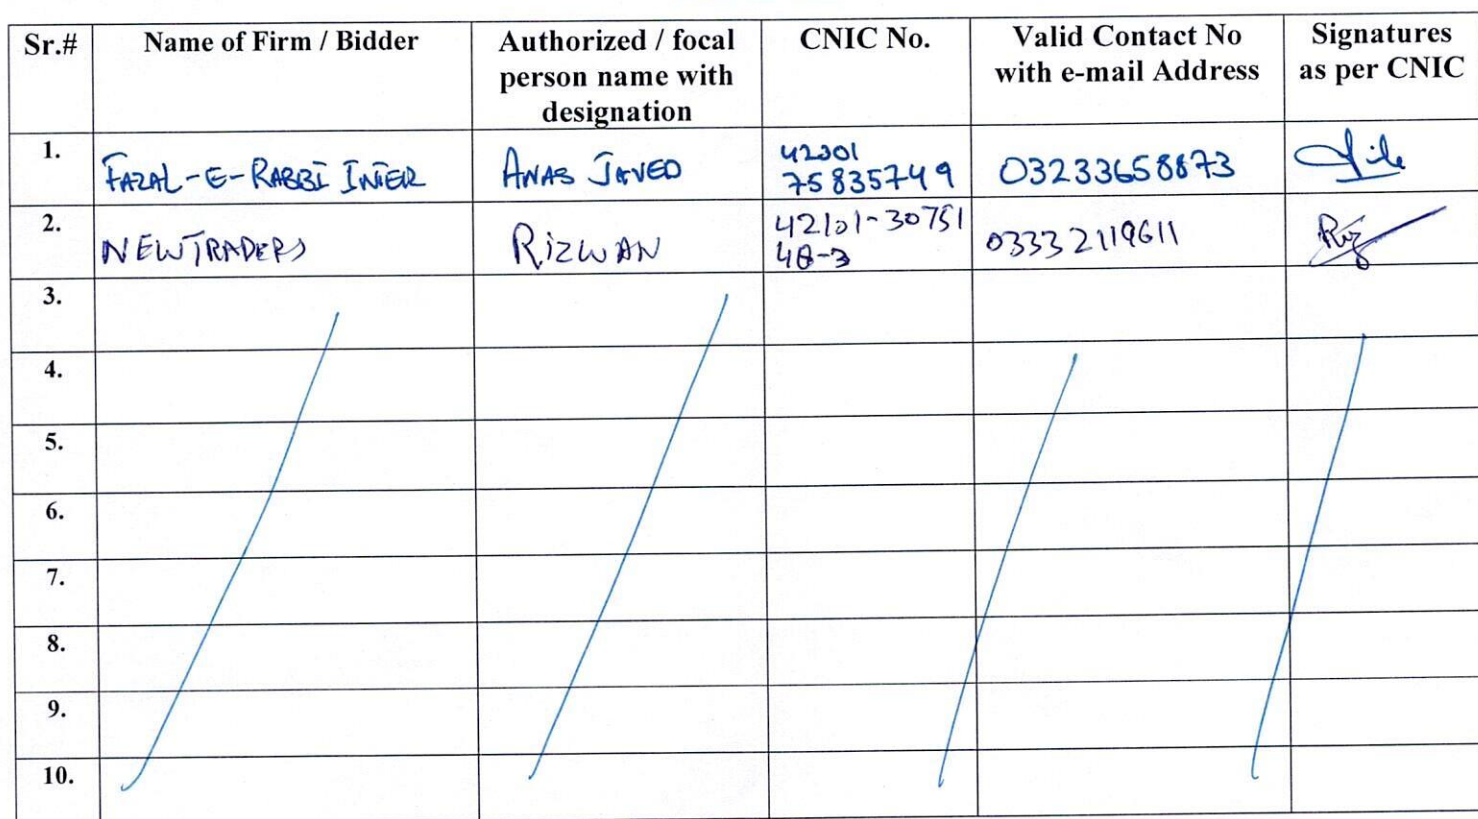 Sr.# Name of Firm / Bidder Authorized / focal person name with designation CNIC No. Valid Contact No with e-mail Address Signatures as per CNIC
1. FAZAL-E-RABBI INTER ANAS JAVED 42301 75835749 03233658873
2. NEWTRADERS RIZWAN 42101-30751 48-3 03332119611
3.
4.
5.
6.
7.
8.
9.
10.